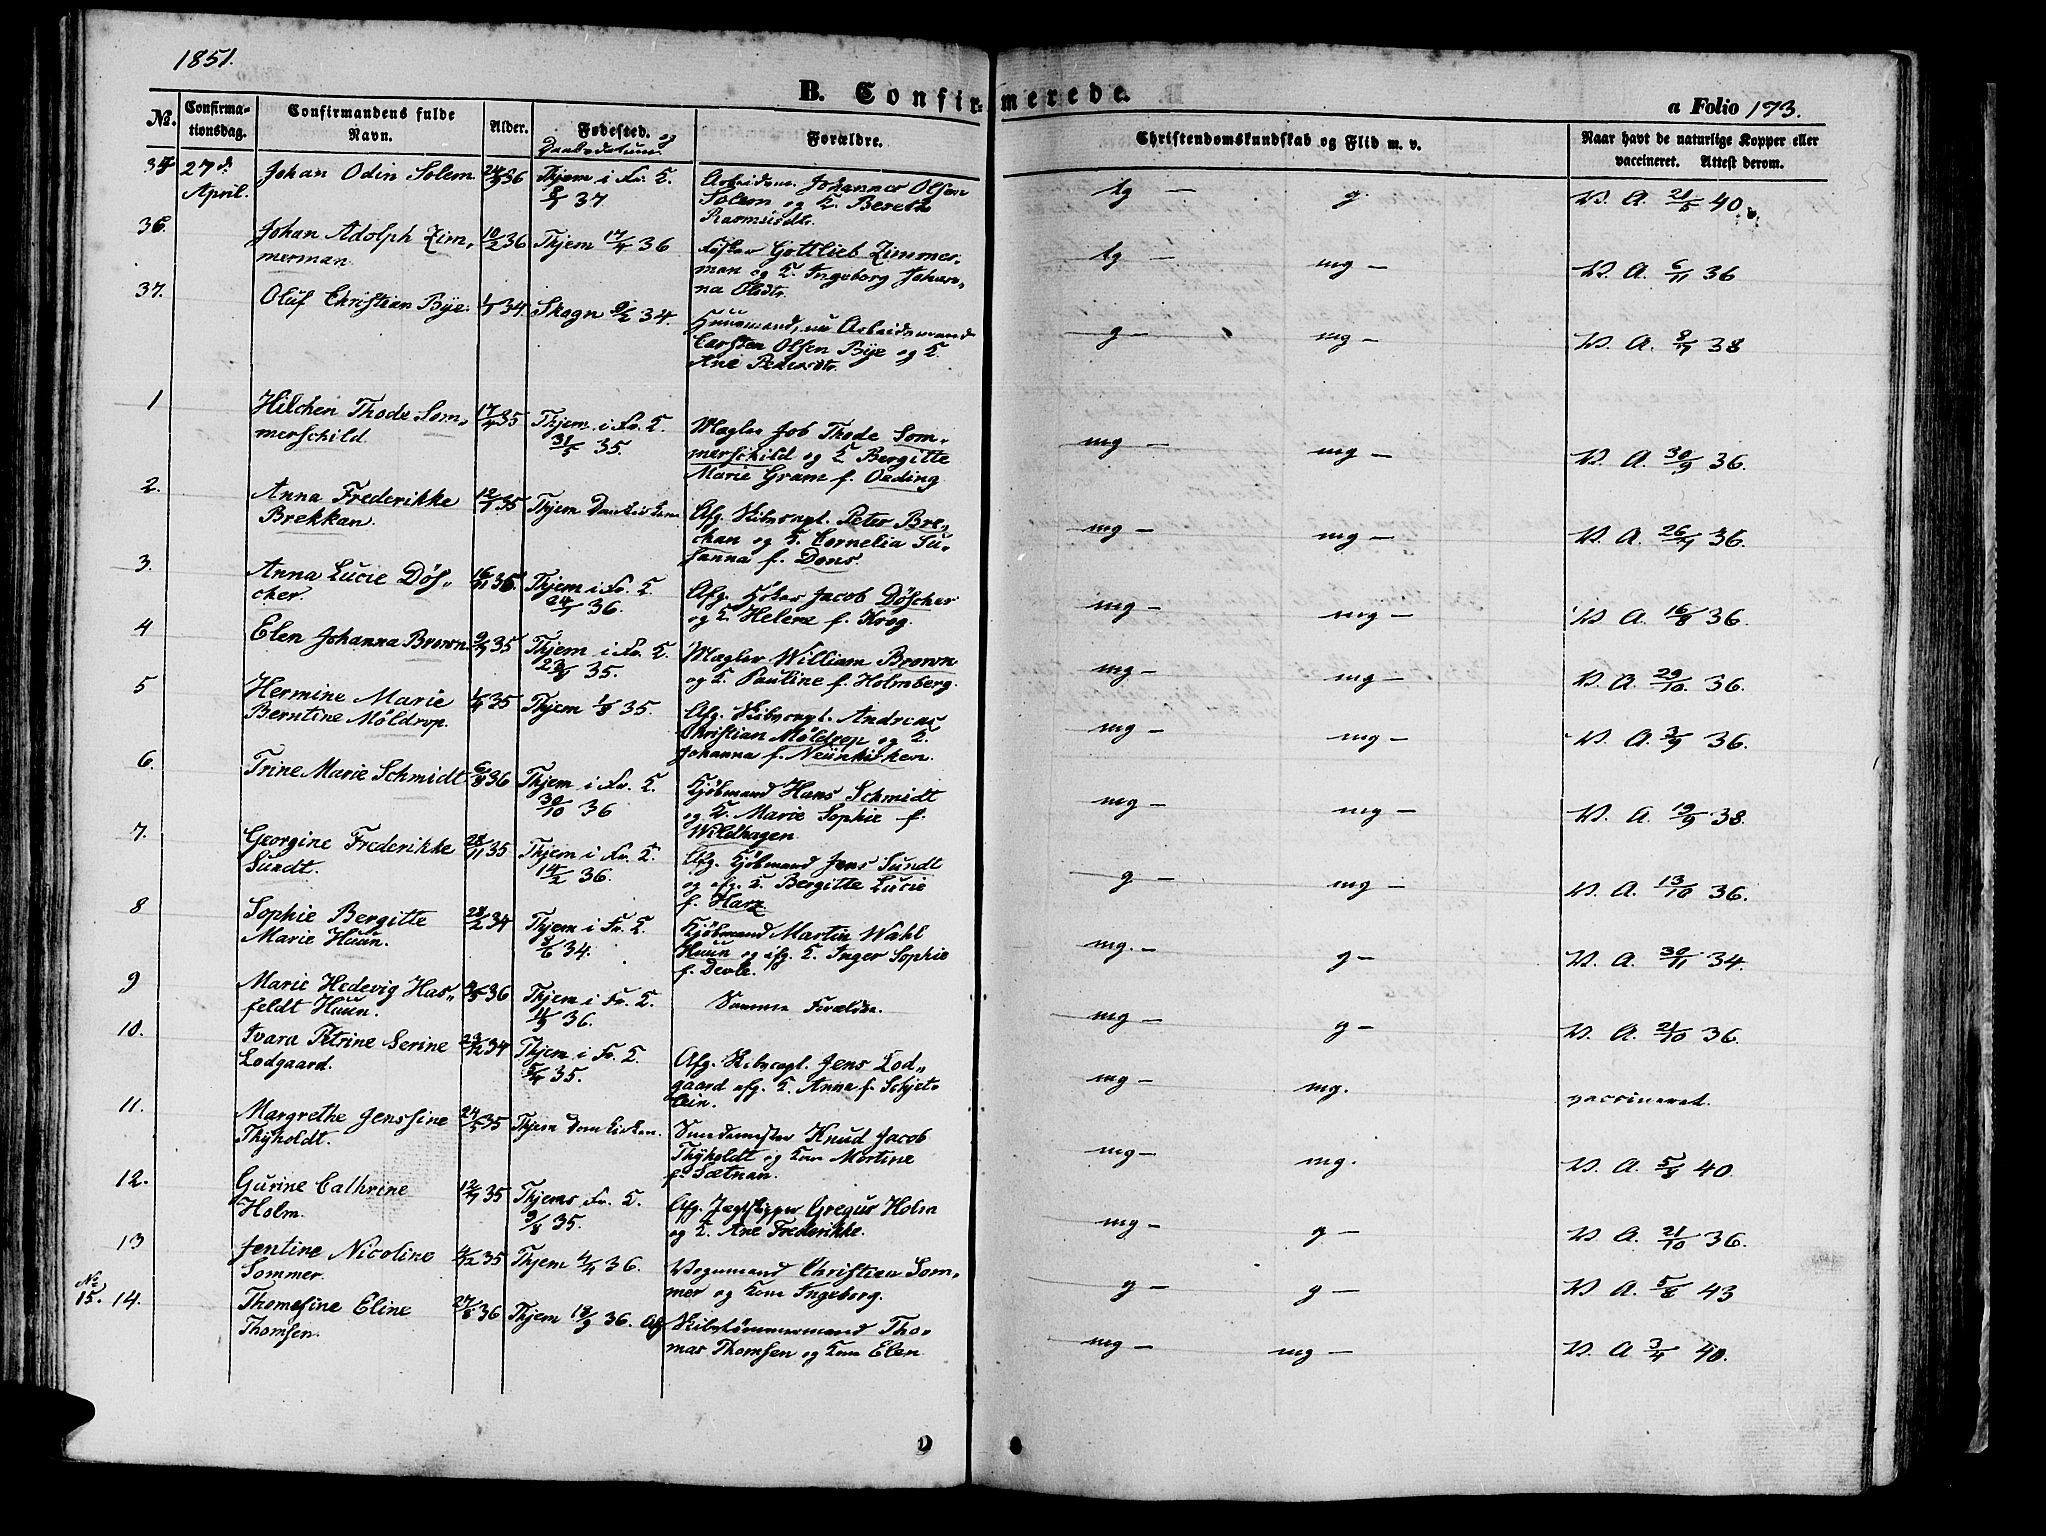 1851.
B. Confirmerede.
a Folio 173.
No. Confirma-tionsdag. Confirmandens fulde Navn. Alder. Fødested. og Daabsdatum Forældre. Christendomskundskab og Flid m. v. Naar havt de naturlige Kopper eller vaccineret. Attest derom.
27d. April. Johan Odin Solem 36 Thjem i Fr. K. 37. Arbeidsm. Johannes Olsen
Solem og K. Bereth
Rasmusdtr.
tg — g. V. A. 21/5 40.
36. Johan Adolph Zim-
merman 10/2 36 Thjem 17/4 36 Gottlieb Zimmer-
man og K. Ingeborg Johan-
na Olsdtr.
tg — mg — V. A. 6/11 36
37. Oluf Christian Bye. 34. Skogn 9/2 34. Huusmand, nu Arbeidsmand
Carsten Olsen Bye og K.
Ane Pedersdtr.
g — mg — V. A. 38
1 Hilchen Thode Som-
merschild 17/4 35 Thjem i Fr. K.
31/5 35. Mægler Job Thode Som-
merschild og K Bergitte
Marie Gram f. Oeding
mg — mg — V. A. 30/9 36.
2. Anna Frederikke
Brekkan. 35 Thjem Domkirken Afg. Skibscapt. Peter Bre-
chan og K. Cornelia Su-
sanna f. Dons.
mg — mg — V. A. 36.
3. Anna Lucie Døs-
cher. 16/11 35. Thjem i Fr. K.
36. Afg. Jacob Døscher
og K. Helene f. Koog.
mg — mg — V. A. 16/8 36.
4 Elen Johanna Brown. 35 Thjem i Fr. K.
35. Mægler William Brown
og K. Pauline f. Holmberg.
mg — mg — V. A. 29/10. 36.
5 Hermine Marie
Berntine Møldrop. 35 Thjem 1/8 35. Afg. Skibscapt. Andreas
Christian Møldrop og K.
Johanna f. Neunkirken.
mg — mg — V. A. 3/9 36.
6. Trine Marie Schmidt 6/8 36 Thjem i Fr. K.
30/10 36 Kjøbmand Hans Schmidt
og K. Marie Sophie f.
Wildhagen
mg — mg — V. A. 19/9 38.
7. Georgine Frederikke
Sundt. 28/11 35 Thjem i Fr. K.
14/2 36. Afg. Kjøbmand Jens Sundt
og afg. K. Bergitte Lucie
f. Harz
g — mg — V. A. 13/10 36.
8 Sophie Bergitte
Marie Huun. 28/2 34 Thjem i Fr. K
34. Kjøbmand Martin Wahl
Huun og afg. K. Inger Sophie
f. Devle.
mg. — g — V. A. 30/11 34.
9 Marie Hedevig Has-
feldt Huun. 36 Thjem i Fr. K.
36. Samme Forældre.
mg — g — V. A. 21/10 36.
10. Ivara Petrine Serine
Lodgaard. 23/12 34 Thjem i Fr. K.
35. Afg. Skibscapt. Jens Lod-
gaard afg. K. Anna f. Schjet-
lein.
mg — mg. vaccineret.
11. Margrethe Jenssine
Thyholdt. 24/5 35 Thjem Domkirken. Smedemester Knud Jacob
Thyholdt og Kone Martine
f. Sætnan.
mg — mg. V. A. 40.
12. Gurine Cathrine
Holm. 35 Thjems Fr. K.
9/8 35. Afg. Jægtskipper Gregus Holm
og K. Ane Frederikke.
mg — g — V. A. 21/10 36.
13 Jentine Nicoline
Sommer. 35 Thjem 36. Vognmand Christian Som-
mer og Kone Ingeborg.
g — g — V. A. 5/8 43
No 15. 14. Thomesine Eline
Thomsen. 27/8 36 Thjem 18/9 36. Afg Skibstømmermand Tho-
mas Thomsen og Kone Elen
mg — mg — V. A 3/4 40.